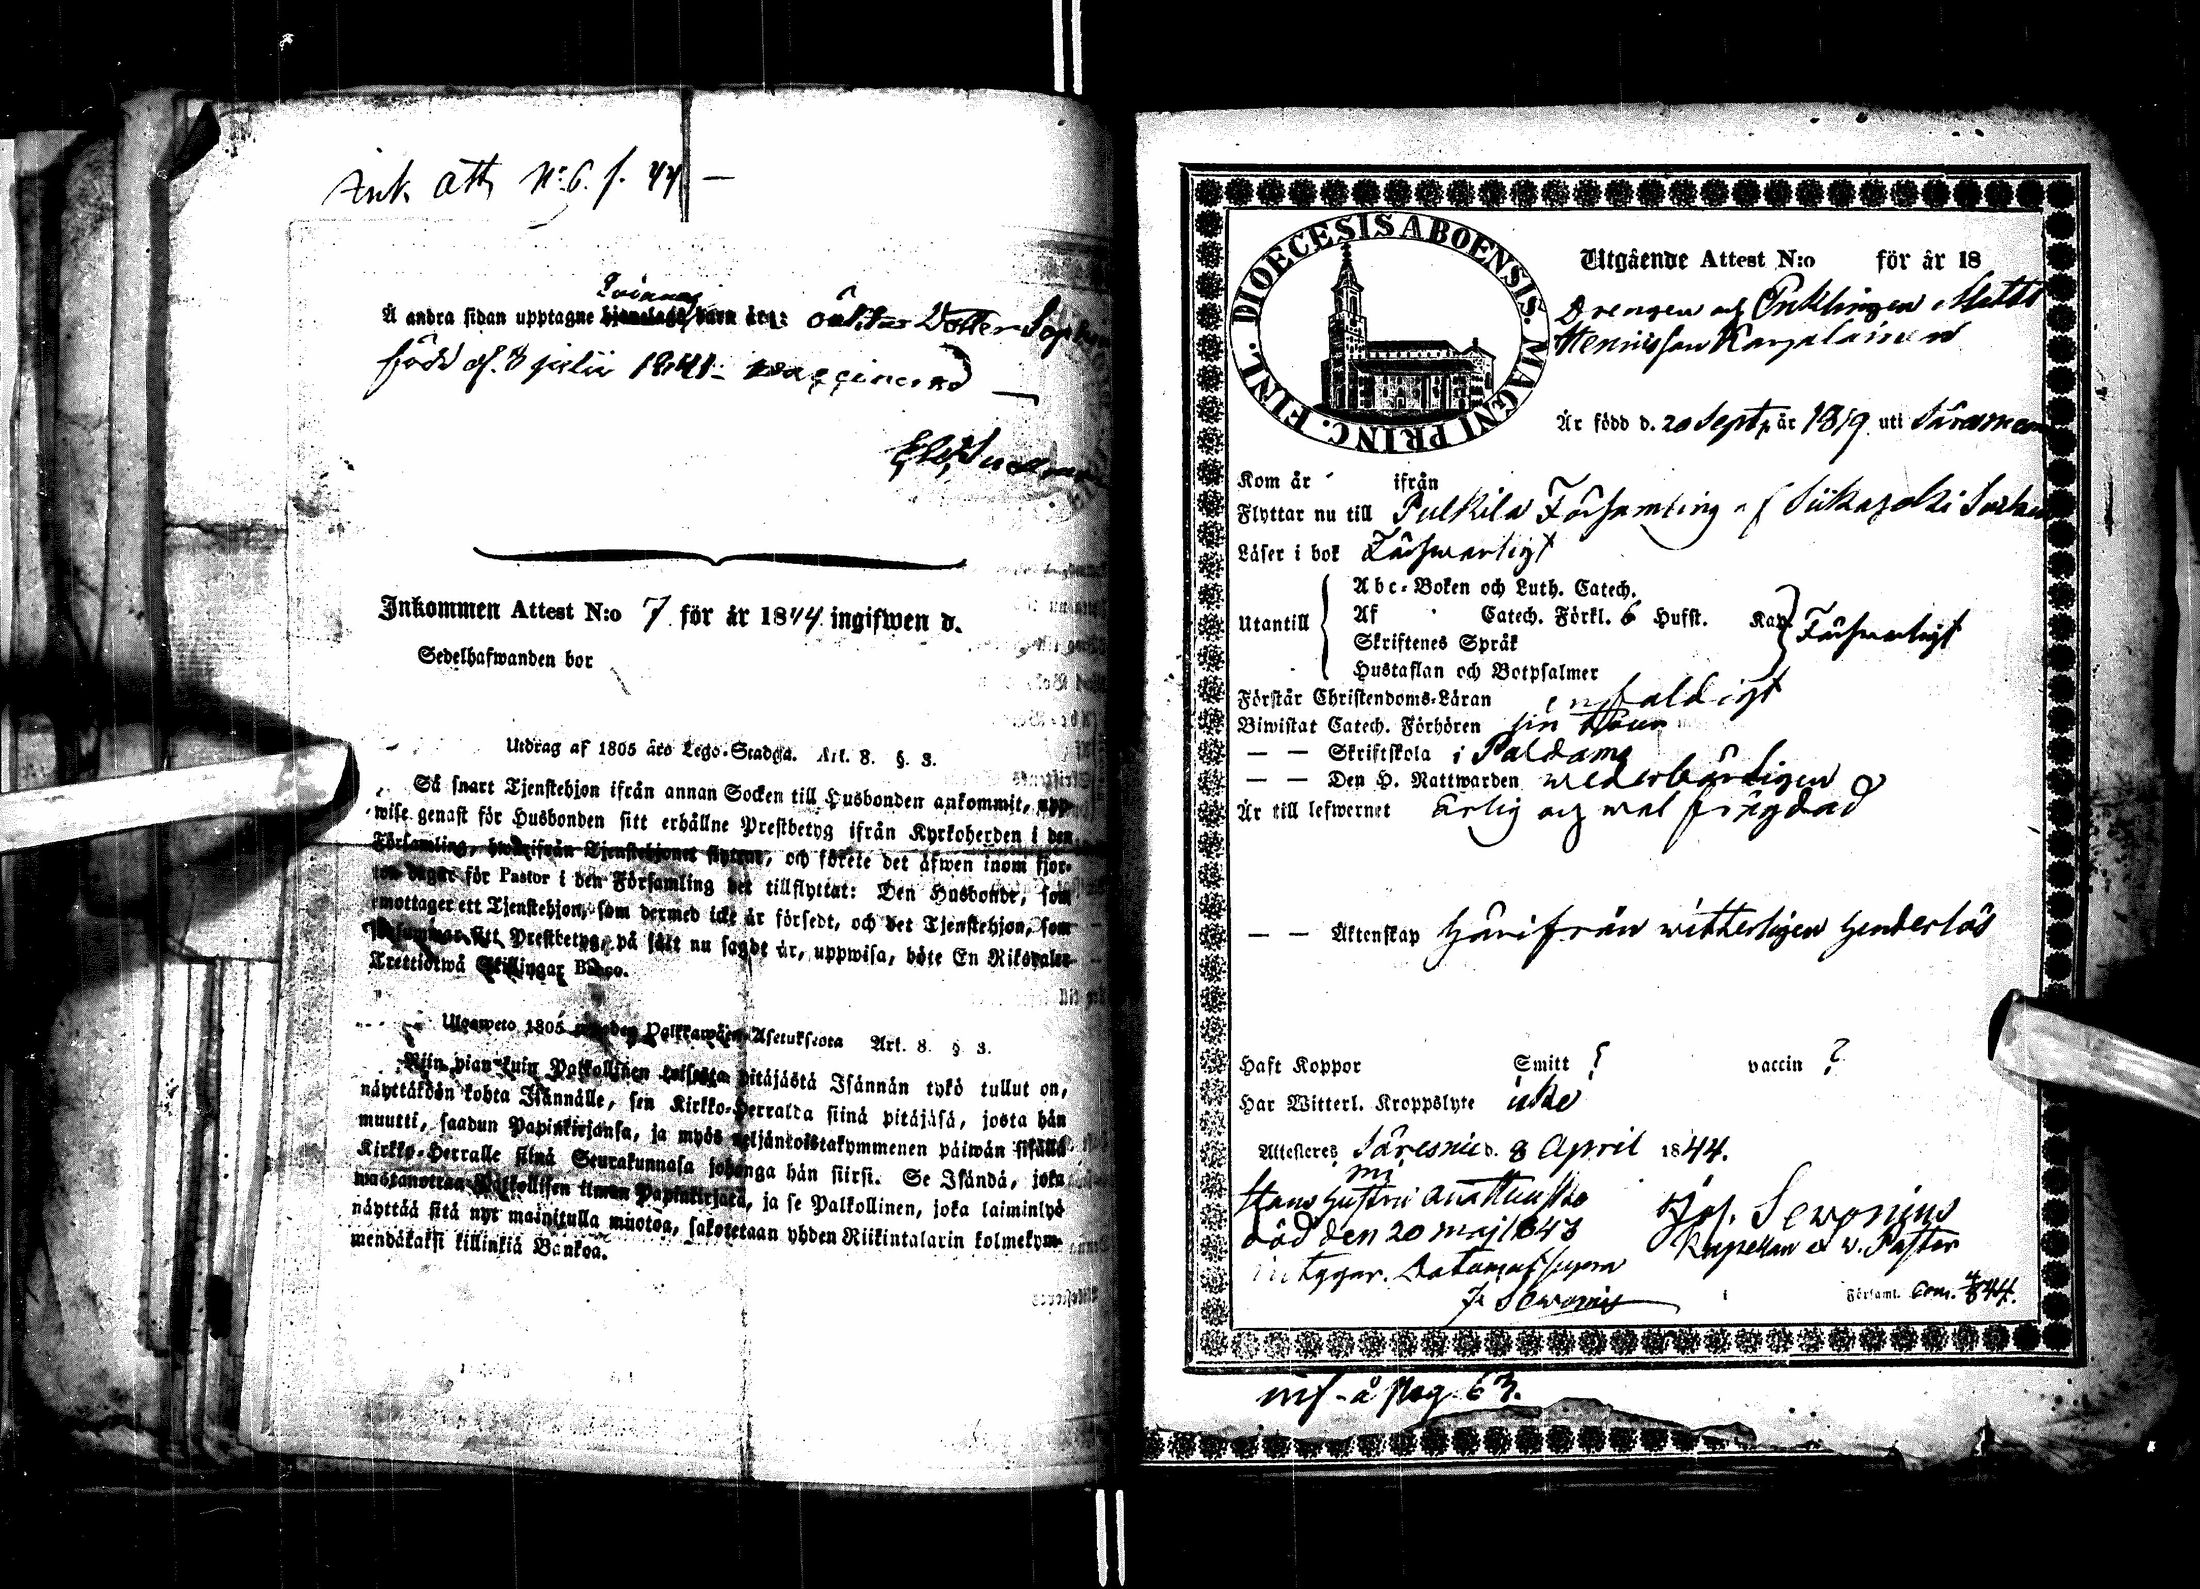 Ank att, No. 6. f. 44 —
Qvinnas
Å andra sidan upptagne hjonelags barn äro: oäkta Dotter Sophia
född d. 3 julii 1841 – vaccinerad —
Inkommen Attest N:o 7 för år 1844 ingifwen d.
Sedelhafwanden bor
Utdrag af 1805 års Lego-Stadga. Art. 8. §. 3.
Så snart Tjenstehjon ifrån annan Socken till Husbonden ankommit, upp-
wise genast för Husbonden sitt erhållne Prestbetyg ifrån Kyrkoherden i den
Församling, hwarifrån Tjenstehjonet flyttat, och förete det äfwen inom fjor-
ton dagar för Pastor i den Församling det tillflyttat: Den Husbonde, som
emottager ett Tjenstehjon, som dermed icke är försedt, och det Tjenstehjon, som
sitt Prestbetyg, på sätt nu sagdt är, uppwisa, böte En Riksdaler
Trettiotwå Skillingar Banco.
Ulosweto 1805 wuoden Palkkawäen-Asetuksesta Art. 8. §. 3.
Niin pian kuin Palkollinen toisesta pitäjästä Isännän tykö tullut on,
näyttäkään kohta Isännälle, sen Kirkko-Herralta siinä pitäjäsä, josta hän
muutti, saadun Papinkirjansa, ja myös neljäntoistakymmenen päiwän sisällä
Kirkko-Herralle siinä Seurakunnasa johonga hän siirsi. Se Isändä, joka
wastanottaa Palkollisen ilman Papinkirjata, ja se Palkollinen, joka laiminlyö
näyttää sitä nyt mainitulla muotoa, sakotetaan yhden Riikintalarin kolmekym-
mendäkaksi killinkiä Bankoa.
DIOECESIS ABOENSIS. MAGNI PRINC. FINL.
Utgående Attest N:o för år 18
Drengen och Enklingen Matts
Henriksson Karjalainen
Är född d. 20 Sept, år 1819 uti
Kom år ifrån
Flyttar nu till Pulkila Församling af Siikajoki Sockn
Läser i bok Försvarligt
Utantill
Abc-Boken och Luth. Catech.
Af Catech. Förkl. 6 Hufst. Kap
Skriftenes Språk
Hustaflan och Botpsalmer
Försvarligt
Förstår Christendoms-Läran enfaldigt
Biwistat Catech. Förhören sin tour
— — Skriftskola i Paldamo
— — Den H. Nattwarden wederbörligen
Är till lefwernet ärlig och wäl frägdad
— — Äktenskap härifrån witterligen hinderlös
Haft Koppor Smitt ? vaccin ?
Har Witterl. Kroppslyte icke
Attesteres Säresnie d. 8 April 1844.
Hans Hustru
död den 20 maj 1843
intygar. Datum ut supra
Js Sewonius
Joh. Sewonius
Kapellan & v. Pastor
i Församl. Com. 4/8 44.
inf. å Pag. 63.